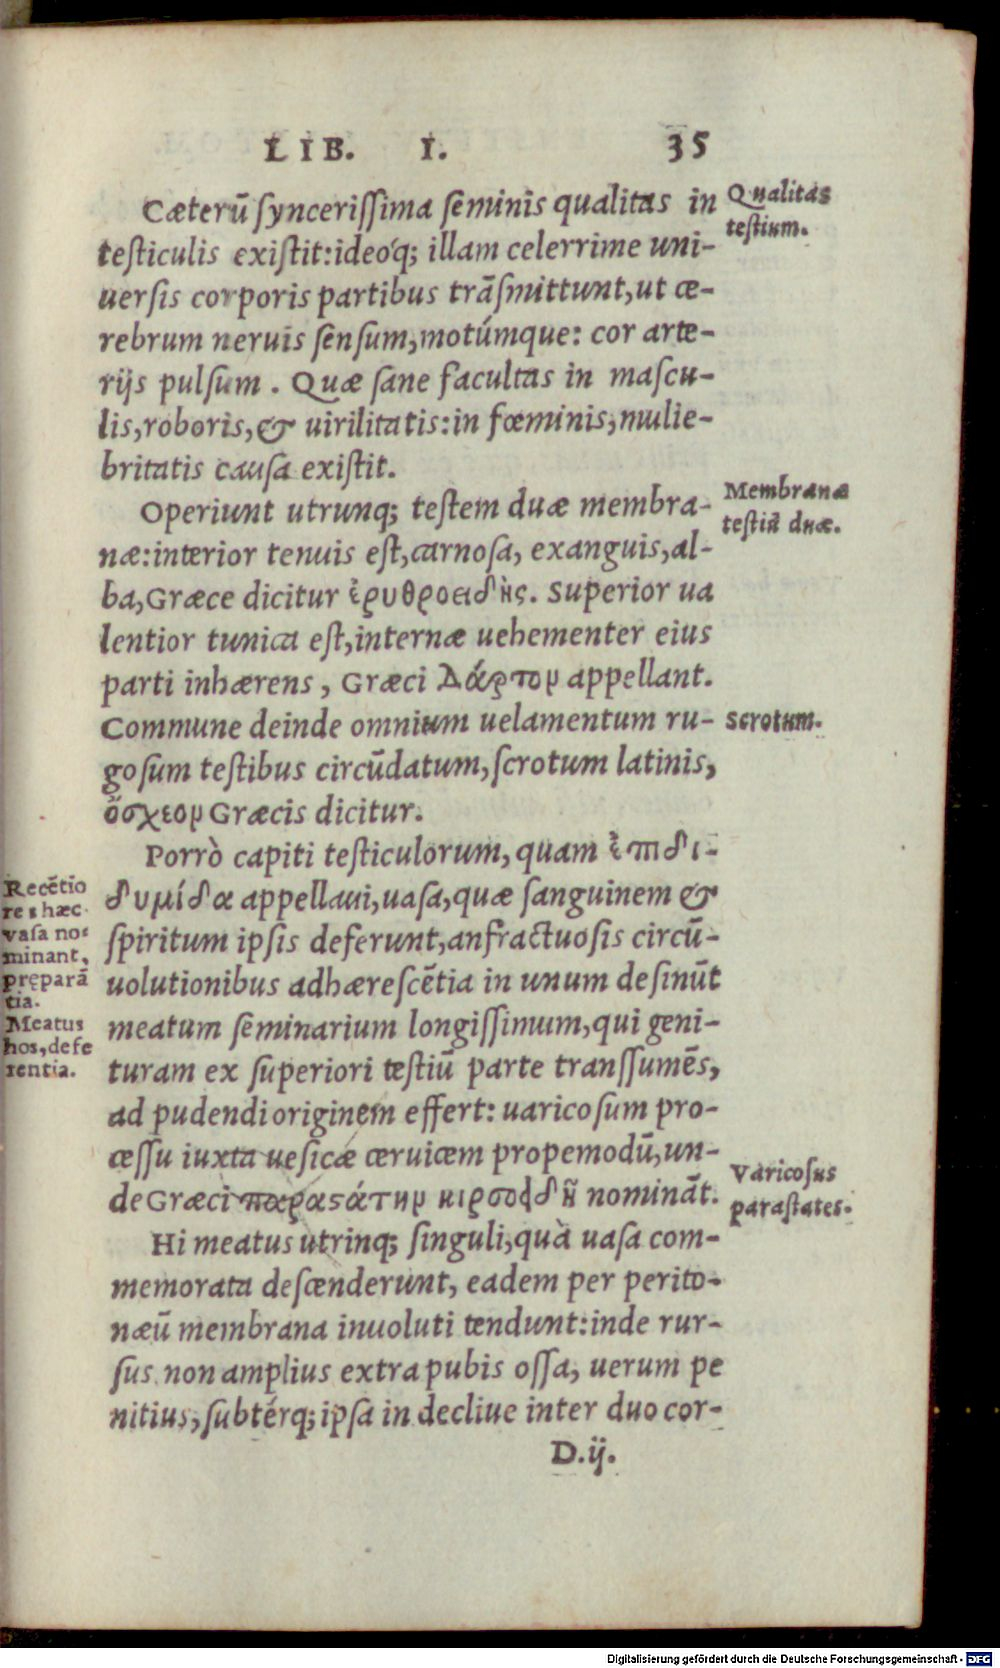 LIB. I. 35
Cæterũ syncerissima seminis qualitas in
Qualitas
testium.
testiculis existit: ideóq; illam celerrime uni-
uersis corporis partibus trãsmittunt, ut ce-
rebrum neruis sensum, motúmque: cor arte-
rijs pulsum. Quæ sane facultas in mascu-
lis, roboris, & uirilitatis: in fœminis, mulie-
britatis causa existit.
Operiunt utrunq; testem duæ membra-
Membranæ
testiũ duæ.
næ: interior tenuis est, carnosa, exanguis, al-
ba, Græce dicitur ἐρυθροειδὴς. Superior ua
lentior tunica est, internæ uehementer eius
parti inhærens, Græci Δάρτον appellant.
Commune deinde omnium uelamentum ru-
Scrotum.
gosum testibus circũdatum, scrotum latinis,
ὄσχεον Græcis dicitur.
Porrò capiti testiculorum, quam ἐπιδι-
δυμίδα appellaui, uasa, quæ sanguinem &
Recẽtio
res hæc
vasa no-
minant,
pręparã
tia.
Meatus
hos, defe
rentia.
spiritum ipsis deferunt, anfractuosis circũ-
uolutionibus adhærescẽtia in unum desinũt
meatum seminarium longissimum, qui geni-
turam ex superiori testiũ parte transsumẽs,
ad pudendi originem effert: uaricosum pro-
cessu iuxta uesicæ ceruicem propemodũ, un-
de Græci παραϛάτην κιρσοειδῆ nominãt.
Varicosus
parastates.
Hi meatus utrinq; singuli, quà uasa com-
memorata descenderunt, eadem per perito-
næũ membrana inuoluti tendunt: inde rur-
sus non amplius extra pubis ossa, uerum pe
nitius, subtérq; ipsa in decliue inter duo cor-
D.ij.
Digitalisierung gefördert durch die Deutsche Forschungsgemeinschaft - DFG